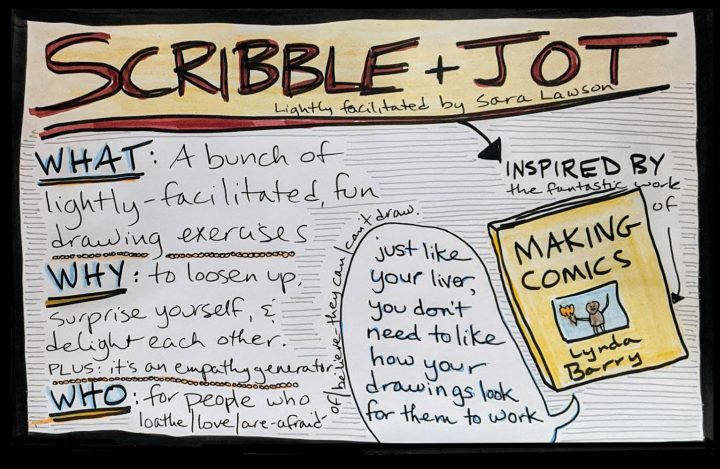 SCRIBBLE + JOT
Lightly facilitated by Sara Lawson
WHAT: A bunch of
lightly-facilitated, fun
drawing exercises
WHY: to loosen up,
surprise yourself, &
delight each other.
PLUS: it's an empathy generator.
WHO: for people who
loathe/love/are-afraid
of/believe they can/can't draw.
just like
your liver,
you don't
need to like
how your
drawings look
for them to work
INSPIRED BY
the fantastic work
of
MAKING
COMICS
Lynda
Barry